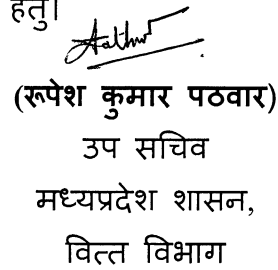 हेतु।
(रूपेश कुमार पठवार)
उप सचिव
मध्यप्रदेश शासन,
वित्त विभाग